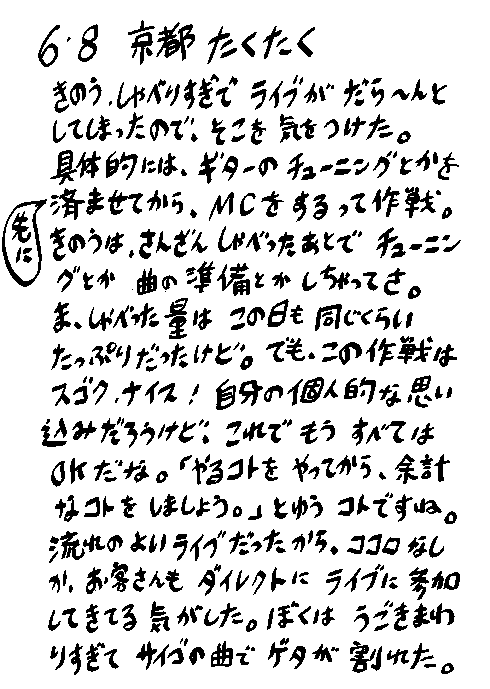 6・8 京都 たくたく
きのう、しゃべりすぎで ライブが だら〜んと
してしまったので、そこを 気をつけた。
具体的には、ギターの チューニングとかを
済ませてから、MCをするって作戦。
先に
きのうは、さんざん しゃべったあとで チューニン
グとか 曲の準備とか しちゃってさ。
ま、しゃべった量は この日も 同じくらい
たっぷりだったけど。でも、この作戦は
スゴク、ナイス！自分の個人的な思い
込みだろうけど、これで もう すべては
OKだな。「やるコトを やってから、余計
なコトを しましょう。」とゆう コトですね。
流れのよいライブだったから、ココロなし
か、お客さんも ダイレクトに ライブに 参加
してきてる 気がした。ぼくは うごきまわ
りすぎて サイゴの曲で ゲタが 割れた。